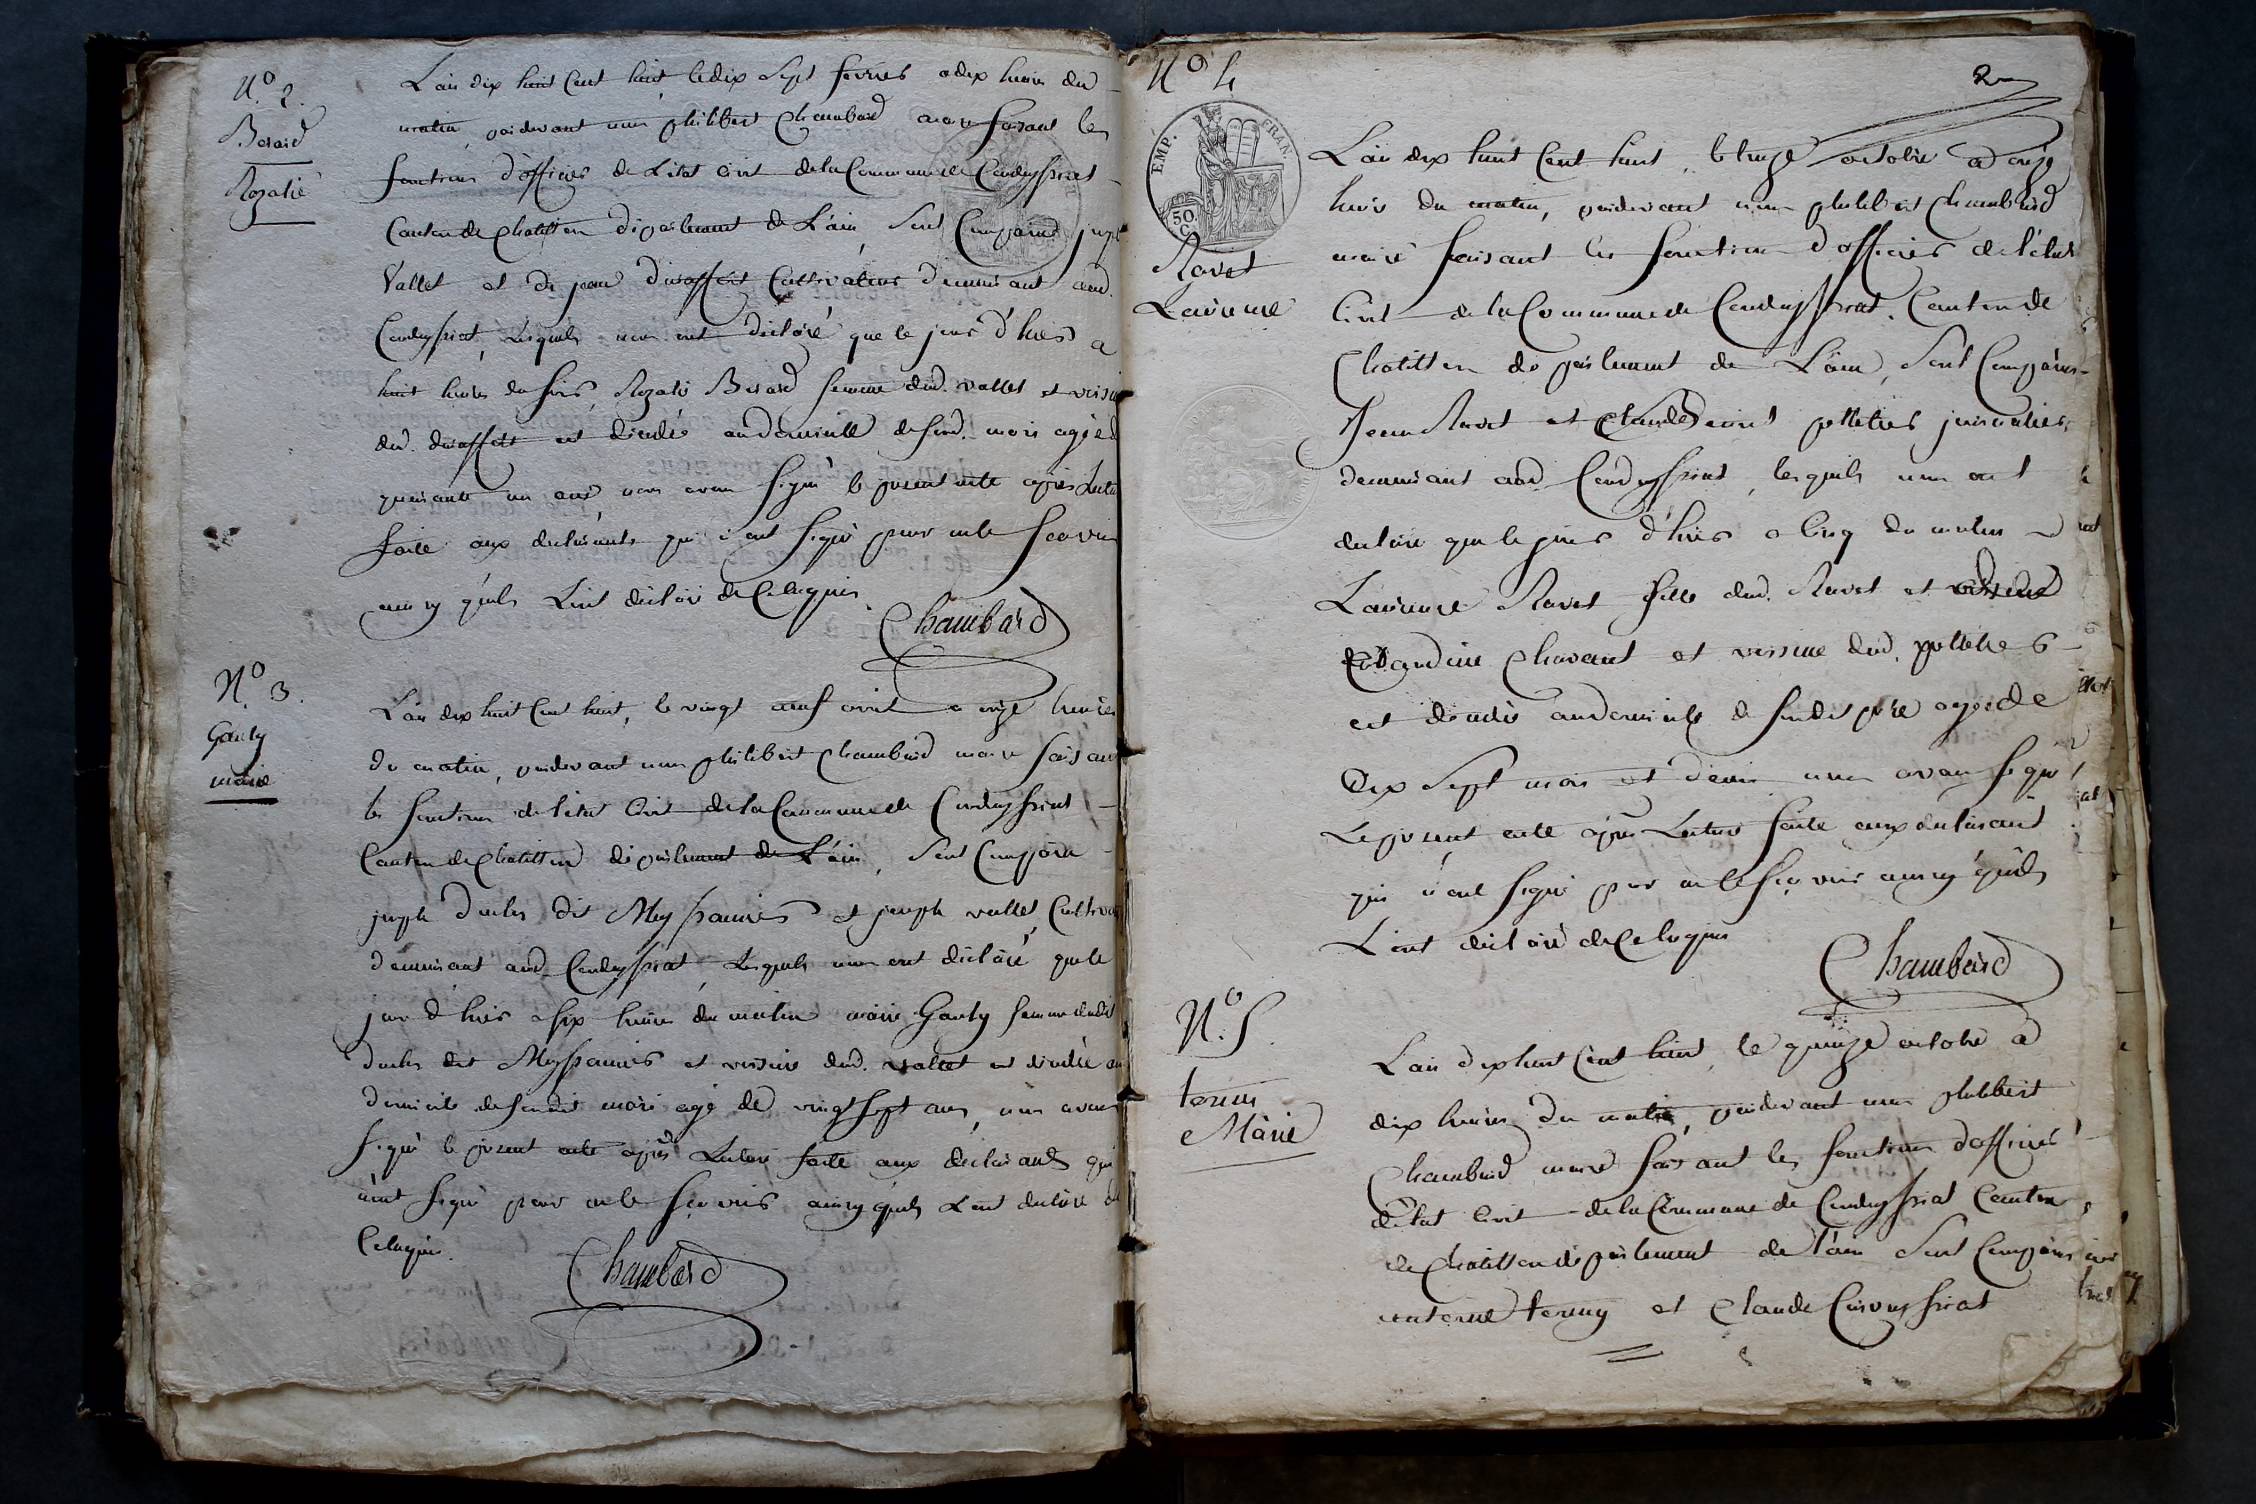 N.º 2.
Berard
Rozalie
L'an dix huit Cent huit, le dix Sept fevrier a dix heures du
matin, pardevant nous philibert Chambard maire faisant les
fonctions d'officier de L'etat Civil de la Commune de Condeyssiat
Canton de Chatillon département de L'ain, Sont Comparus
Vallet et cultivateurs demeurant aud.
Condeyssiat, lesquels nous ont déclaré que le jour d'hier a
huit heures du soir, Rozalie Berard femme dud. vallet et voisine
dud. est décédée au domicille de sond. mari agée de
quarante un ans, nous avons signé le present acte après lecture
faite aux declarants qui n'ont signé pour ne le scavoir
ainsy qu'ils L'ont déclaré de Ce requis
Chambard
N.º 3.
Gauty
marie
L'an dix huit Cent huit, le vingt neuf avril a onze heures
du matin, pardevant nous philibert Chambard maire faisant
les fonctions de l'etat Civil de la Commune de Condeyssiat
Canton de Chatillon département de L'ain, Sont Comparu
joseph dit et joseph vallet, Cultivateurs
demeurant aud. Condeyssiat, Lesquels nous ont déclaré que le
jour d'hier a six heures du matin marie Gauty femme dudit
dit et voisine dud. vallet est décédée au
domicile de sondit mari agé de vingt sept ans, nous avons
signé le present acte après Lecture faite aux déclarants qui
n'ont signé pour ne le scavoir ainsy qu'ils L'ont declaré de
Ce requis.
Chambard
N.º 4
2
EMP. FRAN.
50. C.
Ravet
Laurence
L'an dix huit Cent huit, le treize octobre a onze
heures du matin, pardevant nous philibert Chambard
maire faisant les fonctions d'officier de l'etat
Civil de la Commune de Condeyssiat, Canton de
Chatillon département de L'ain, Sont Comparus
Jean Ravet et Claude pelletier journaliers
demeurant aud. Condeyssiat, lesquels nous ont
declaré que le jour d'hier a Cinq du matin
Laurence Ravet fille dud. Ravet et
Claudine Chavant et voisine dud. pelletier
est décédée au domicile de sondit père agée de
Dix Sept mois et demi nous avons signé
Le present acte après Lecture faite aux declarant
qui n'ont signé pour ne le scavoir ainsy qu'ils
L'ont déclaré de Ce requis
Chambard
N.º 5.
terme
Marie
L'an dix huit Cent huit, le quinze octobre a
dix heures du matin, pardevant nous philibert
Chambard maire faisant les fonctions d'officier
d'etat Civil de la Commune de Condeyssiat Canton
de Chatillon département de l'ain Sont Comparus
antoine et Claude